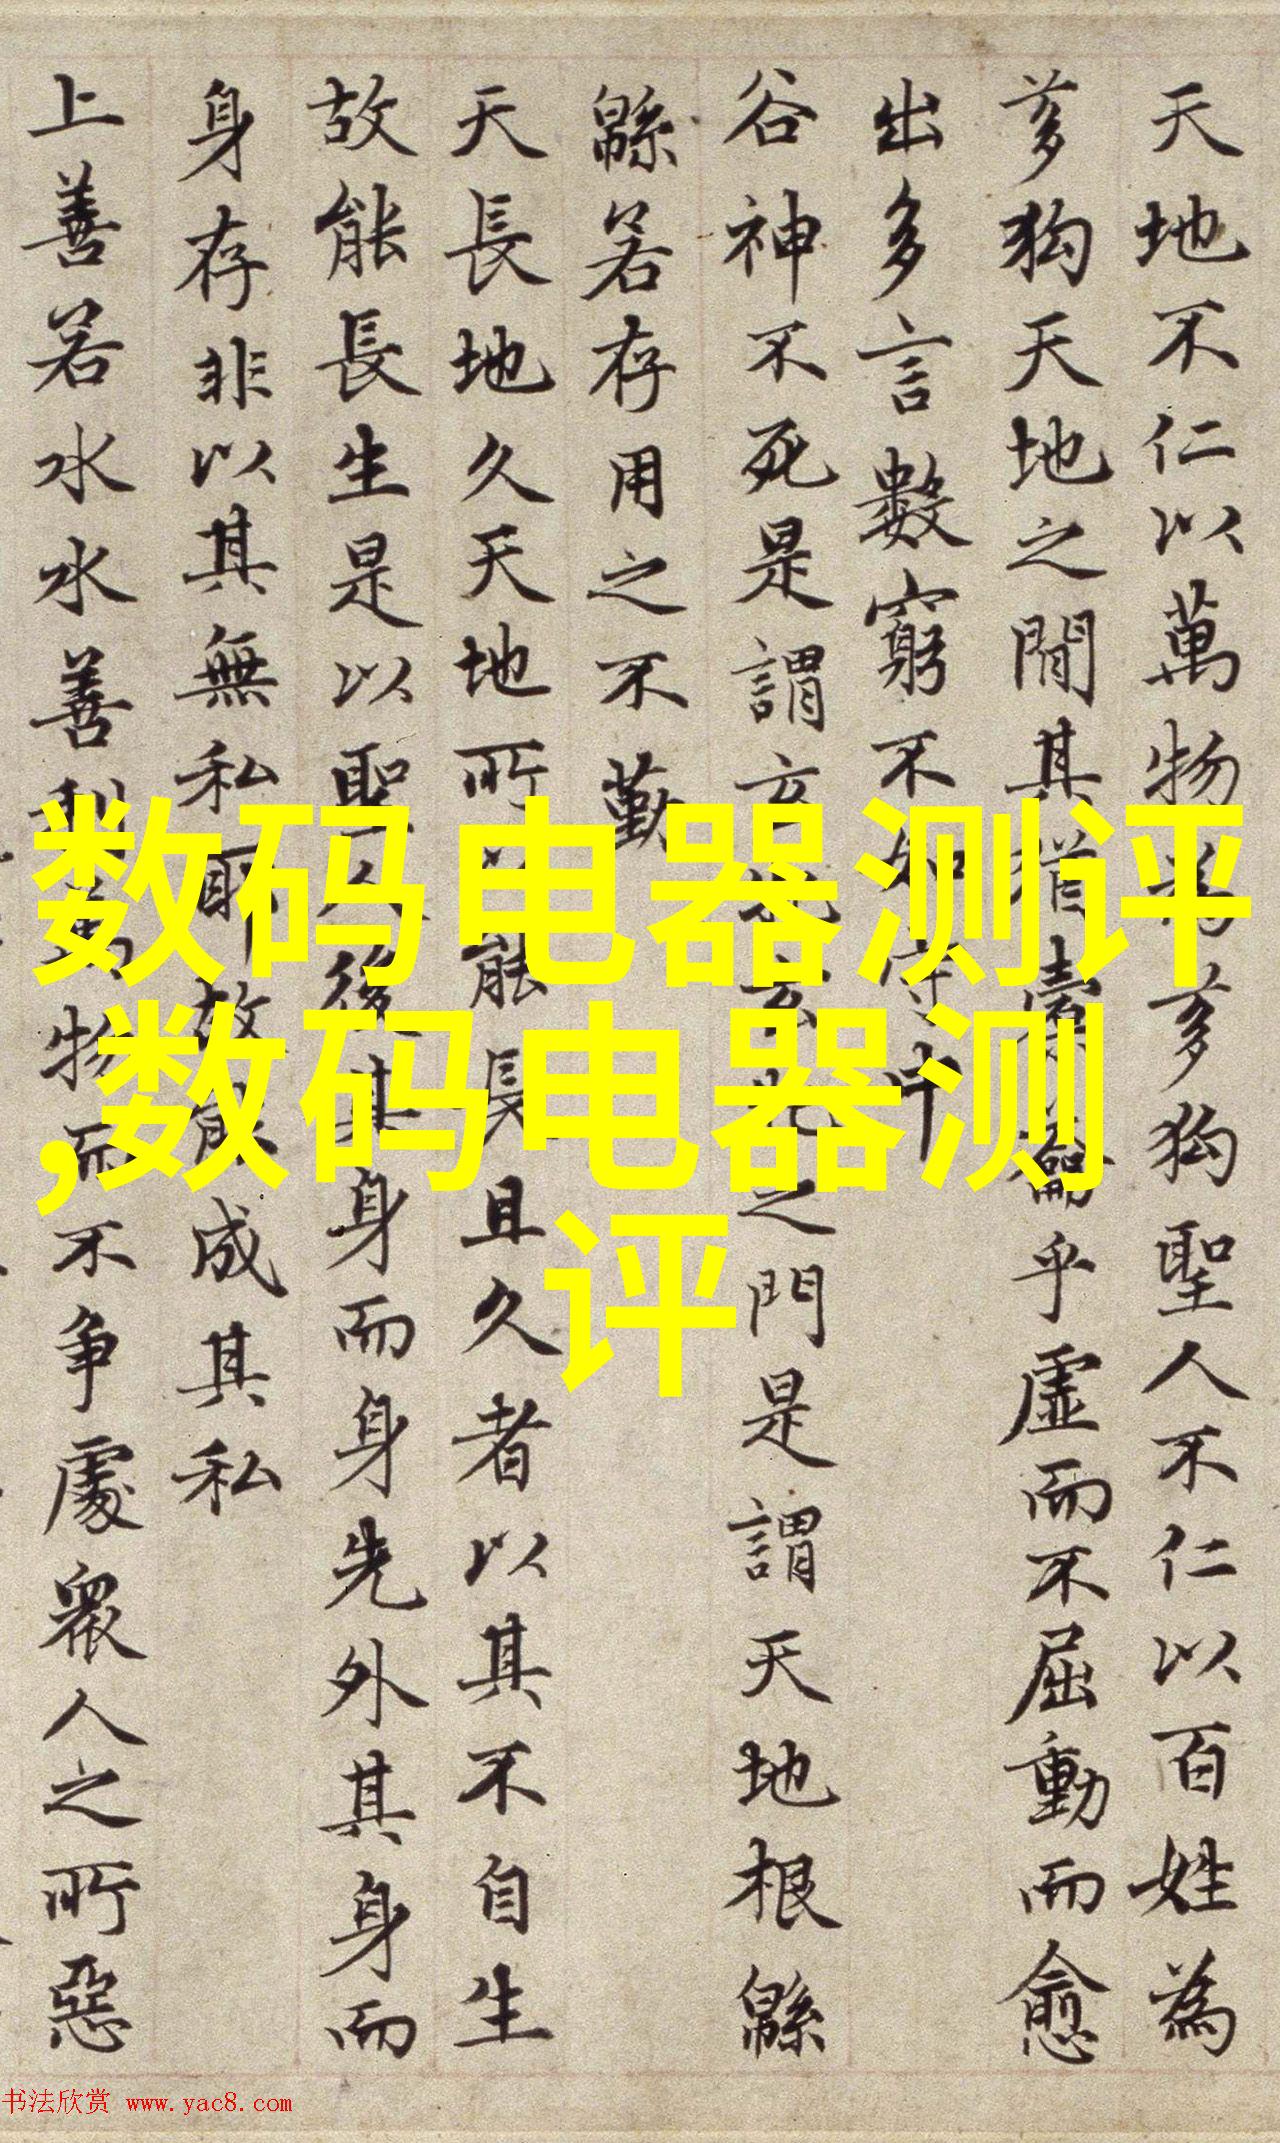 天地不仁以萬物為芻狗聖人不仁以百姓為
芻狗天地之間其猶橐籥乎虛而不屈動而愈
出多言數窮不如守中
谷神不死是謂玄牝玄牝之門是謂天地根緜
緜若存用之不勤
天長地久天地所以能長且久者以其不自生
故能長生是以聖人後其身而身先外其身而
身存非以其無私耶故能成其私
上善若水水善利萬物而不争處衆人之所惡
数码电器测评
,数码电器测
评
书法欣赏 www.yac8.com